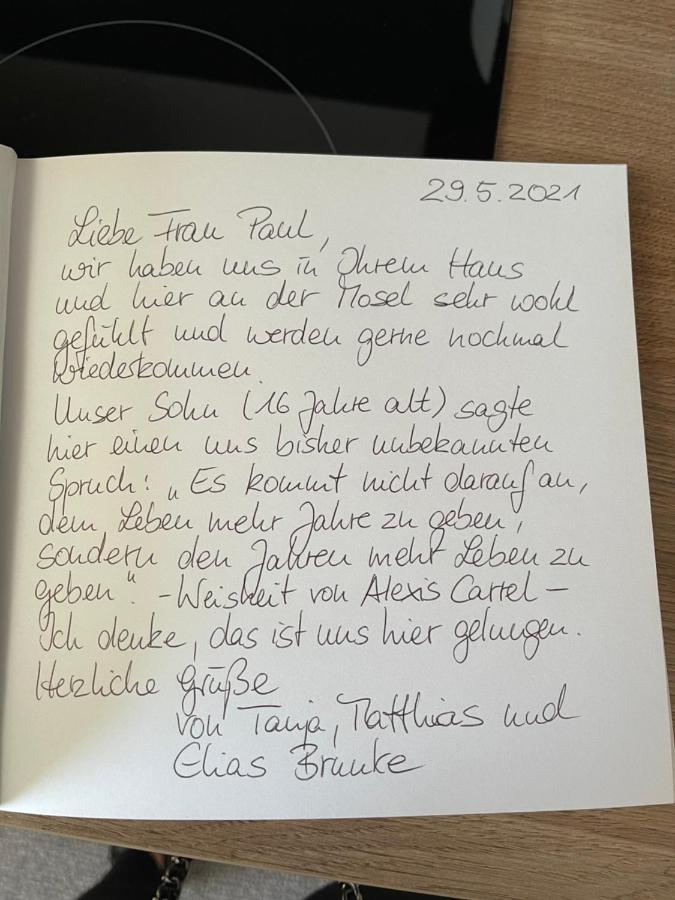 29.5.2021
Liebe Frau Paul,
wir haben uns in Ihrem Haus
und hier an der Mosel sehr wohl
gefühlt und werden gerne nochmal
wiederkommen.
Unser Sohn (16 Jahre alt) sagte
hier einen uns bisher unbekannten
Spruch: „Es kommt nicht darauf an,
dem Leben mehr Jahre zu geben,
sondern den Jahren mehr Leben zu
geben“. - Weisheit von Alexis Carrel -
Ich denke, das ist uns hier gelungen.
Herzliche Grüße
von Tanja, Matthias und
Elias Brunke